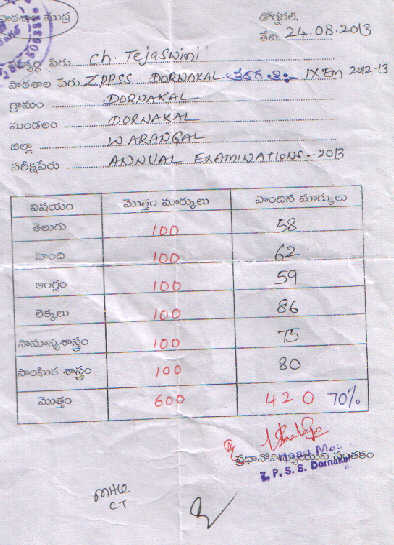 పాఠశాల ముద్ర
డోర్నకల్,
తేది. 24.08.2013
పేరు. Ch. Tejaswini
పాఠశాల పేరు ZPSSS DORNAKAL తరగతి: IX EM 2012-13
గ్రామం DORNAKAL
మండలం DORNAKAL
జిల్లా WARANGAL
పరీక్షపేరు ANNUAL EXAMINATIONS-2013
విషయం మొత్తం మార్కులు పొందిన మార్కులు
తెలుగు 100 58
హింది 100 62
ఇంగ్లీషు 100 59
లెక్కలు 100 86
సామాన్యశాస్త్రం 100 75
సాంఘిక శాస్త్రం 100 80
మొత్తం 600 420 70%
ప్రధానోపాధ్యాయుని సంతకం
Z. P. S. S. Dornakal
C.T